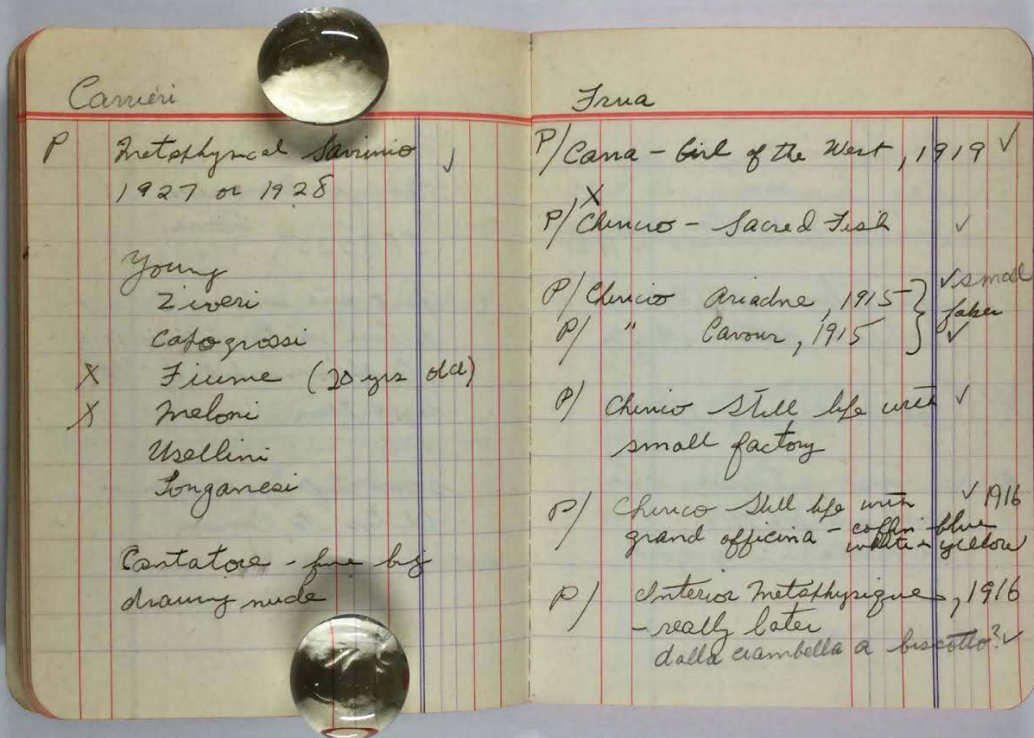 Carrieri
P Metaphysical Savinio ✓
1927 or 1928
Young
Ziveri
Capogrossi
X Fiume (20 yrs old)
X Meloni
Usellini
Longanesi
Cantatore - fine big
drawing nude
Frua
P/ Carra - Girl of the West, 1919 ✓
X
P/ Chirico - Sacred Fish ✓
P/ Chirico Ariadne, 1915 } ✓ small
P/ " Cavour, 1915 } ✓
P/ Chirico Still life with ✓
small factory
P/ Chirico Still life with ✓ 1916
grand officina - coffin blue
white & yellow
P/ Interior Metaphysique, 1916
- really later
dalla ciambella a biscotto? ✓